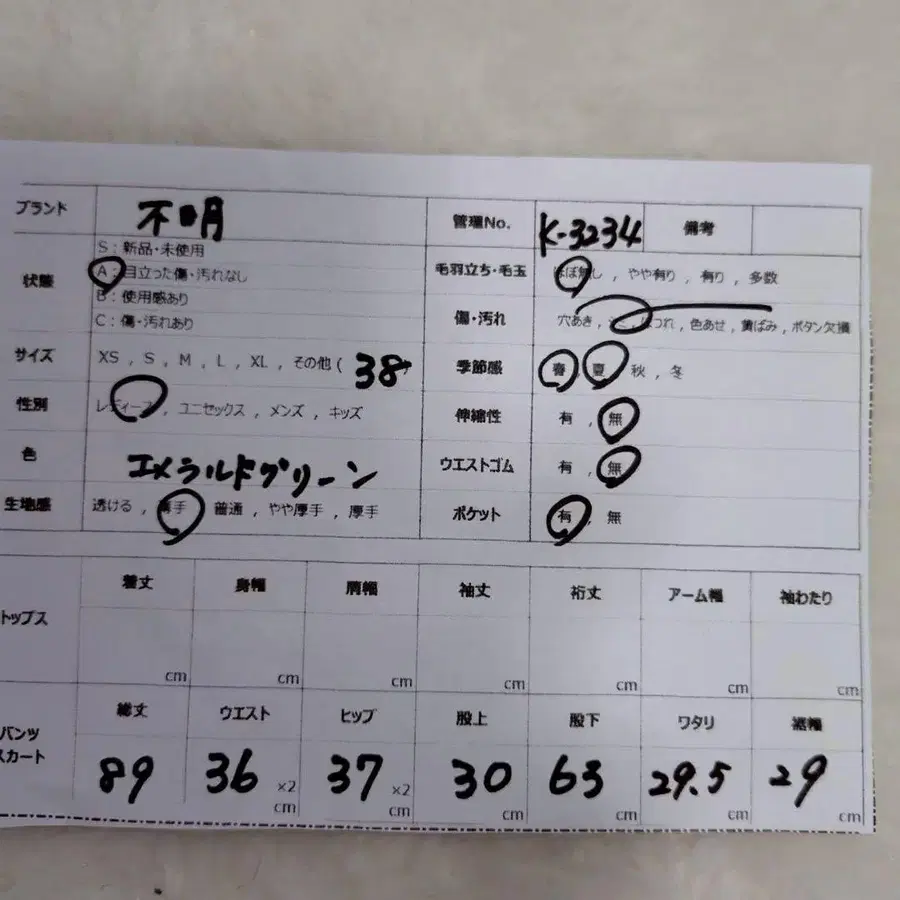 ブランド 不明 管理No. K-3234 備考
状態 S：新品・未使用
A：目立った傷・汚れなし
B：使用感あり
C：傷・汚れあり
毛羽立ち・毛玉 ほぼ無し , やや有り , 有り , 多数
傷・汚れ 穴あき , シミ , ほつれ , 色あせ , 黄ばみ , ボタン欠損
サイズ XS , S , M , L , XL , その他 ( 38
季節感 春 , 夏 , 秋 , 冬
性別 レディース , ユニセックス , メンズ , キッズ
伸縮性 有 , 無
色 エメラルドグリーン
ウエストゴム 有 , 無
生地感 透ける , 薄手 , 普通 , やや厚手 , 厚手
ポケット 有 , 無
トップス 着丈 身幅 肩幅 袖丈 裄丈 アーム幅 袖わたり
cm cm cm cm cm cm cm
パンツ
スカート
総丈 ウエスト ヒップ 股上 股下 ワタリ 裾幅
89 36 ×2 37 ×2 30 63 29.5 29
cm cm cm cm cm cm